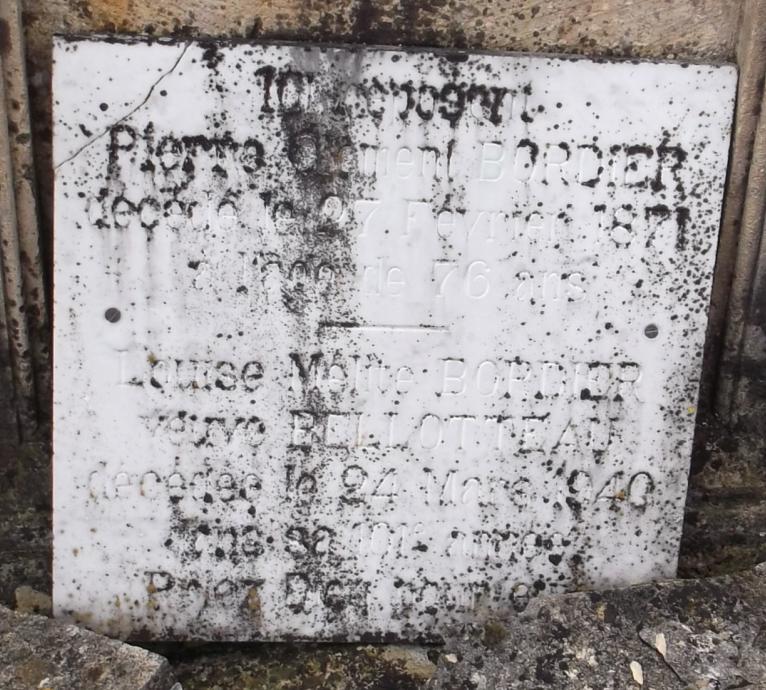 ICI reposent
Pierre Clément BORDIER
décédé le 27 Février 1871
à l'âge de 76 ans
Louise Mélite BORDIER
veuve BELLOTTEAU
décédée le 24 Mars 1940
dans sa 101e année
Priez Dieu pour